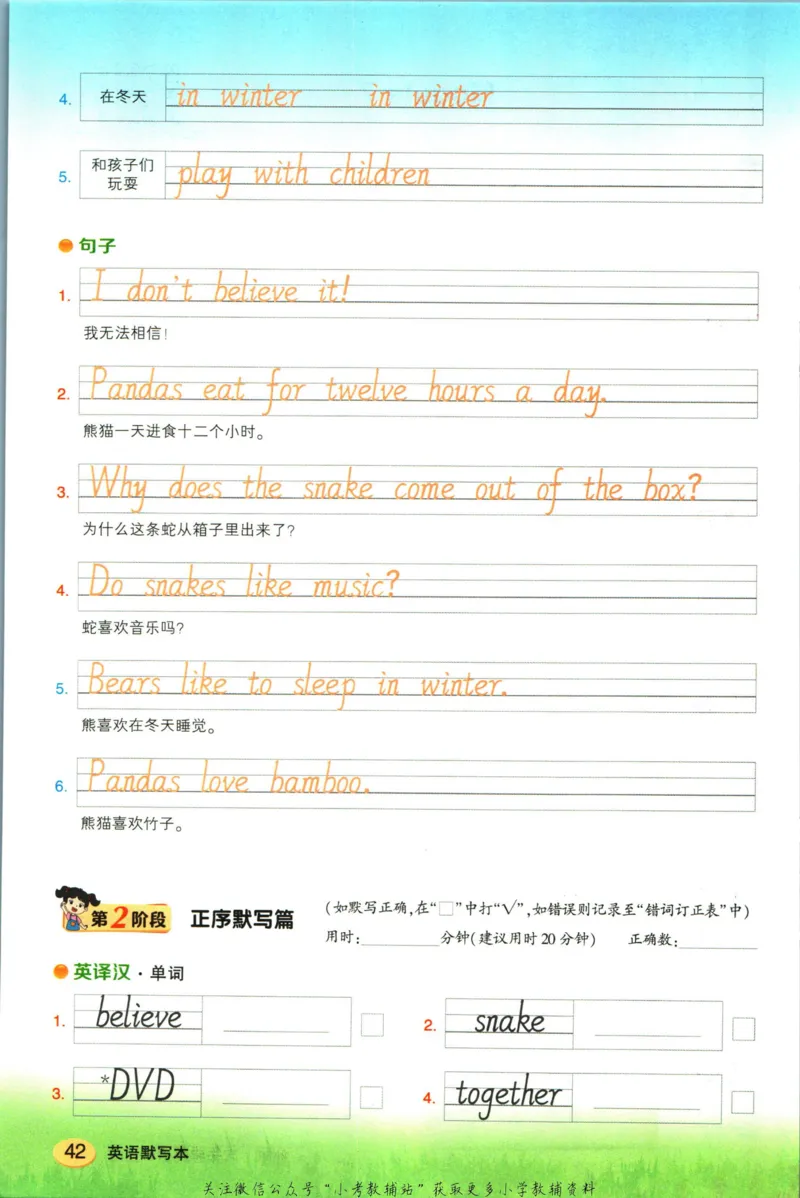 4. 在冬天 in winter in winter
5. 和孩子们玩耍 play with children
句子
1. I don't believe it!
我无法相信!
2. Pandas eat for twelve hours a day.
熊猫一天进食十二个小时。
3. Why does the snake come out of the box?
为什么这条蛇从箱子里出来了?
4. Do snakes like music?
蛇喜欢音乐吗?
5. Bears like to sleep in winter.
熊喜欢在冬天睡觉。
6. Pandas love bamboo.
熊猫喜欢竹子。
第2阶段 正序默写篇 (如默写正确,在“□”中打“√”,如错误则记录至“错词订正表”中)
用时:________分钟(建议用时20分钟) 正确数:________
英译汉·单词
1. believe
2. snake
3. *DVD
4. together
42 英语默写本
关注微信公众号“小考教辅站”获取更多小学教辅资料